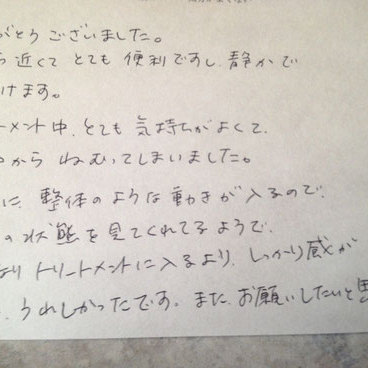 がとう ございました。
ら近くて とても 便利ですし、静かで
けます。
ートメント中、とても 気持ちがよくて、
から ねむってしまいました。
に、整体のような動きが入るので、
の状態を見てくれてるようで、
なり トリートメントに入るより、しっかり感が
、うれしかったです。また、お願いしたいと思